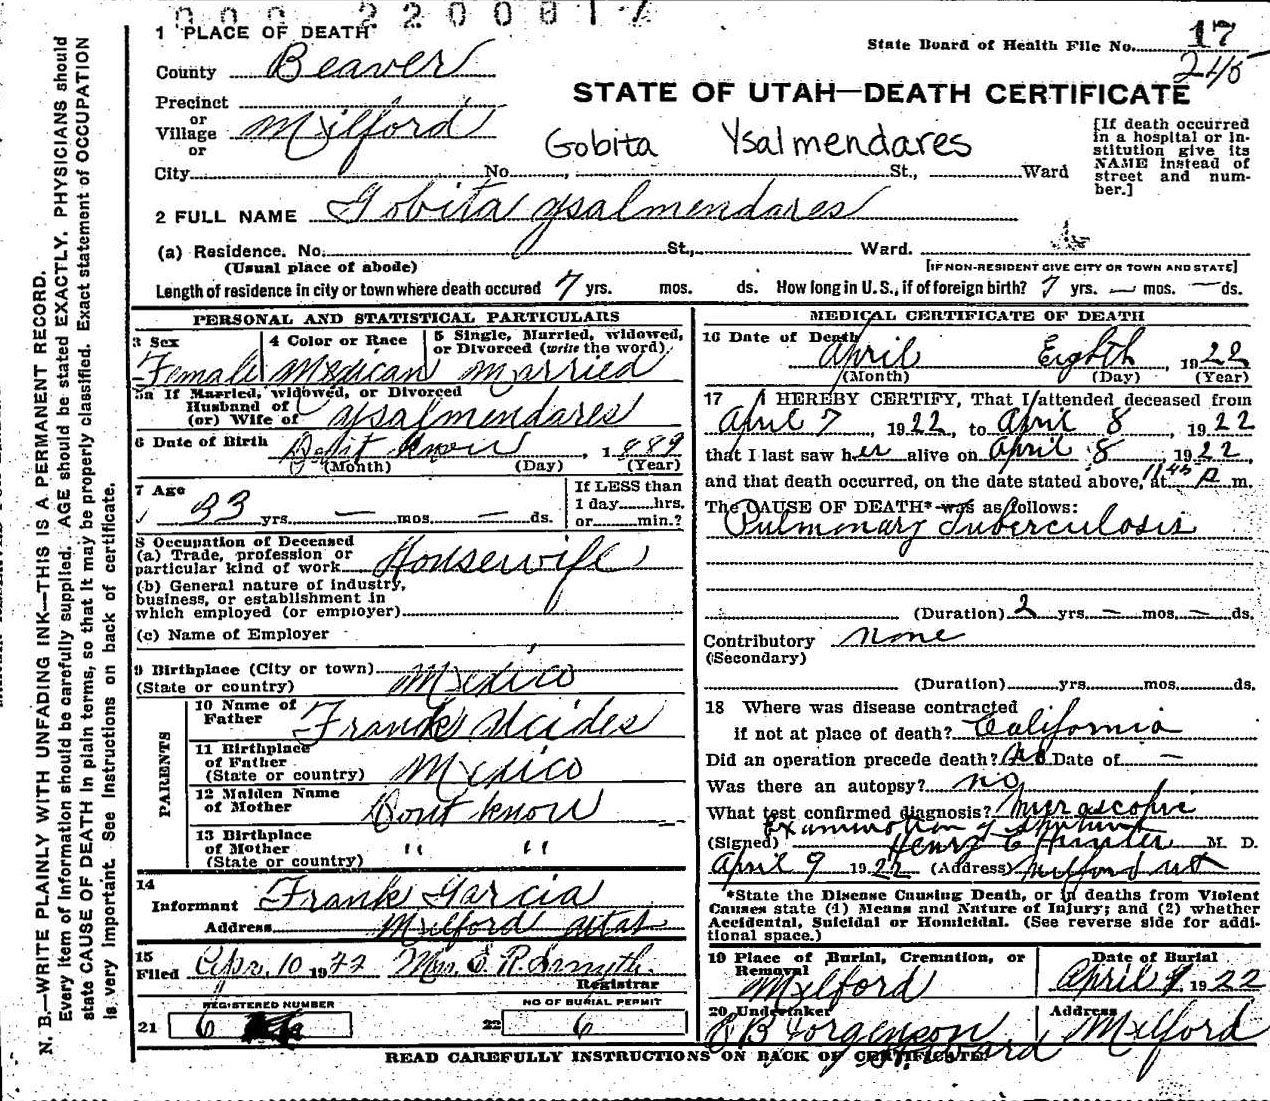 2200817
1 PLACE OF DEATH
State Board of Health File No. 17
245
County Beaver
STATE OF UTAH—DEATH CERTIFICATE
Precinct
or
Village Milford
or
Gobita Ysalmendares
[If death occurred in a hospital or in-
stitution give its
NAME instead of
street and num-
ber.]
City No. , St., Ward
2 FULL NAME Gobita Ysalmendares
(a) Residence. No. St., Ward.
(Usual place of abode)
[IF NON-RESIDENT GIVE CITY OR TOWN AND STATE]
Length of residence in city or town where death occured 7 yrs. mos. ds. How long in U.S., if of foreign birth? 7 yrs. — mos. — ds.
PERSONAL AND STATISTICAL PARTICULARS
3 Sex Female
4 Color or Race Mexican
5 Single, Married, widowed,
or Divorced (write the word).
Married
5a If Married, widowed, or Divorced
Husband of
(or) Wife of Ysalmendares
6 Date of Birth Don't know , 1889
(Month) (Day) (Year)
7 Age
33 yrs. — mos. — ds.
If LESS than
1 day hrs.
or min.?
8 Occupation of Deceased
(a) Trade, profession or
particular kind of work Housewife
(b) General nature of industry,
business, or establishment in
which employed (or employer)
(c) Name of Employer
9 Birthplace (City or town)
(State or country) Mexico
PARENTS
10 Name of
Father Frank
11 Birthplace
of Father
(State or country) Mexico
12 Maiden Name
of Mother Dont know
13 Birthplace
of Mother " "
(State or country)
14
Informant Frank Garcia
Address Milford Utah
15
Filed Apr. 10 1922 Mrs. E. R. Smyth.
Registrar
REGISTERED NUMBER
21 6
NO OF BURIAL PERMIT
22 6
MEDICAL CERTIFICATE OF DEATH
16 Date of Death
April Eighth , 1922
(Month) (Day) (Year)
17 I HEREBY CERTIFY, That I attended deceased from
April 7 1922, to April 8, 1922
that I last saw her alive on April 8 1922,
and that death occurred, on the date stated above, at 11 45 P m.
The CAUSE OF DEATH* was as follows:
Pulmonary Tuberculosis
(Duration) 2 yrs. — mos. — ds.
Contributory None
(Secondary)
(Duration) yrs. mos. ds.
18 Where was disease contracted
if not at place of death? California
Did an operation precede death? No Date of —
Was there an autopsy? no
What test confirmed diagnosis? Microscopic
Examination of Sputum
(Signed) Henry C Hunter M. D.
April 9 1922 (Address) Milford Ut
*State the Disease Causing Death, or in deaths from Violent
Causes state (1) Means and Nature of Injury; and (2) whether
Accidental, Suicidal or Homicidal. (See reverse side for addi-
tional space.)
19 Place of Burial, Cremation, or
Removal
Milford
Date of Burial
April 9 1922
20 Undertaker
Jorgenson
Address
Milford
READ CAREFULLY INSTRUCTIONS ON BACK OF CERTIFICATE.
N. B.—WRITE PLAINLY WITH UNFADING INK—THIS IS A PERMANENT RECORD.
Every item of information should be carefully supplied. AGE should be stated EXACTLY. PHYSICIANS should
state CAUSE OF DEATH in plain terms, so that it may be properly classified. Exact statement of OCCUPATION
is very important. See instructions on back of certificate.